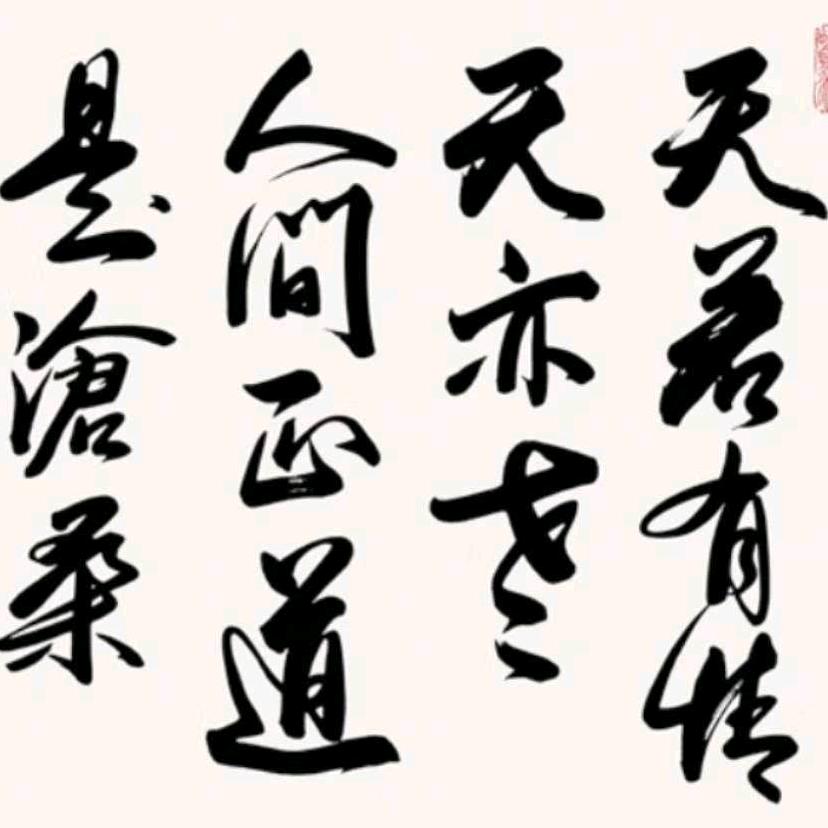 天若有情
天亦老
人间正道
是沧桑